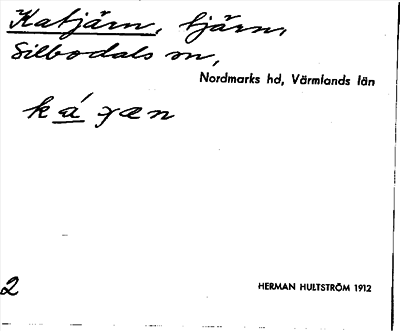 Katjärn, tjärn,
Silbodals sn,
Nordmarks hd, Värmlands län
2
HERMAN HULTSTRÖM 1912